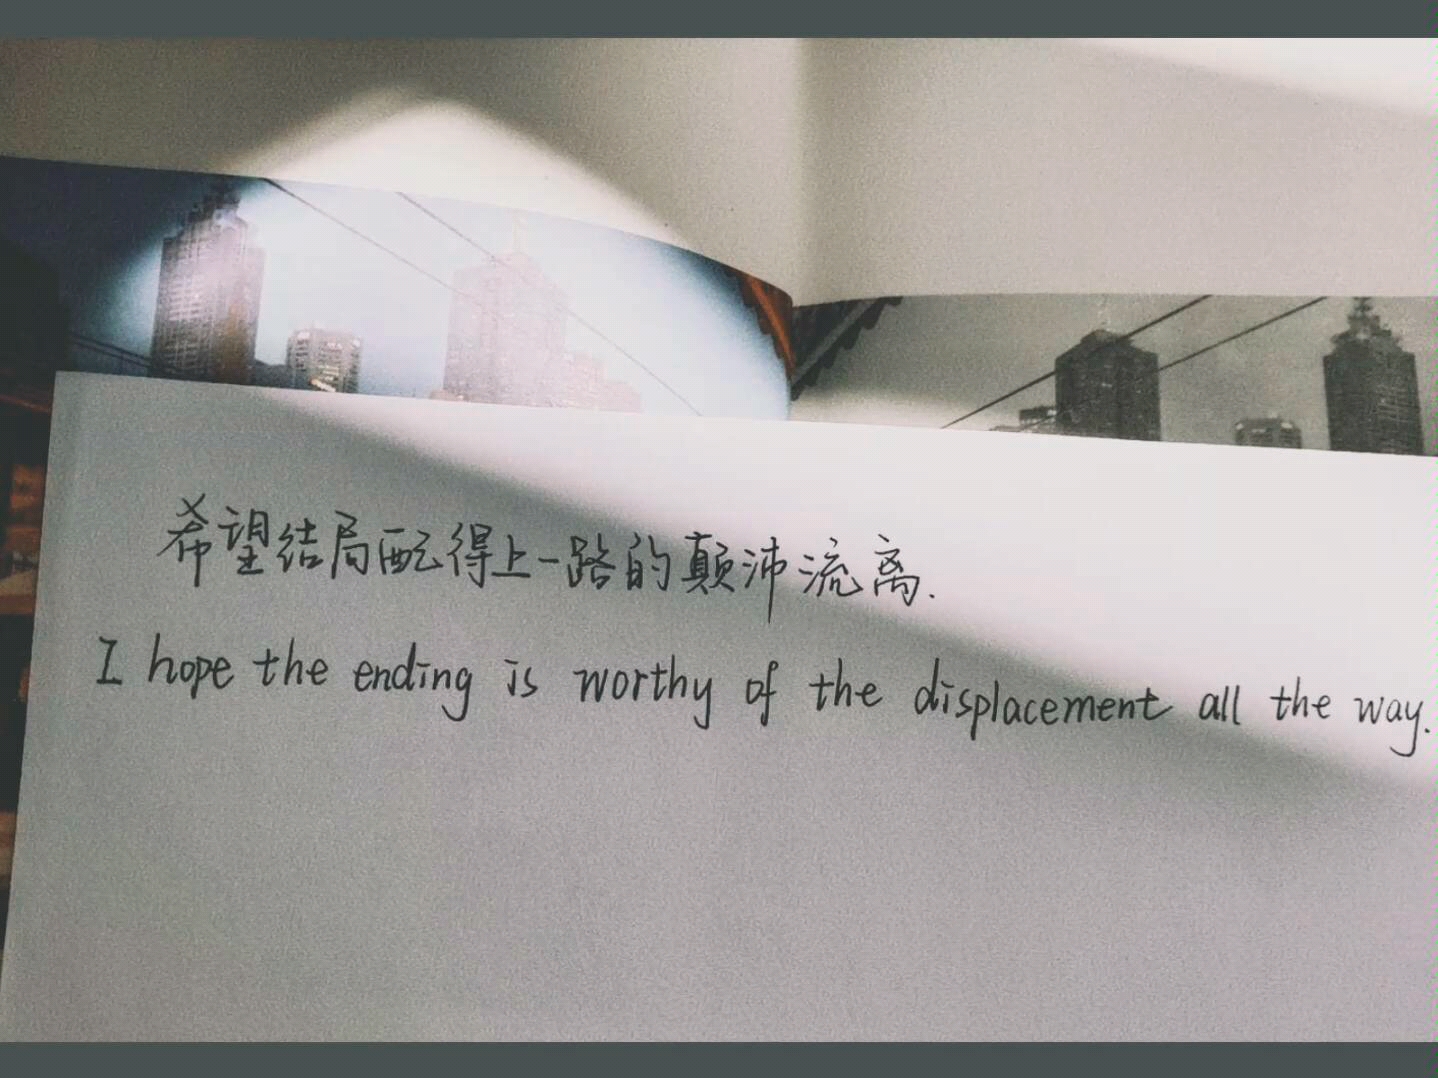 希望结局配得上一路的颠沛流离.
I hope the ending is worthy of the displacement all the way.